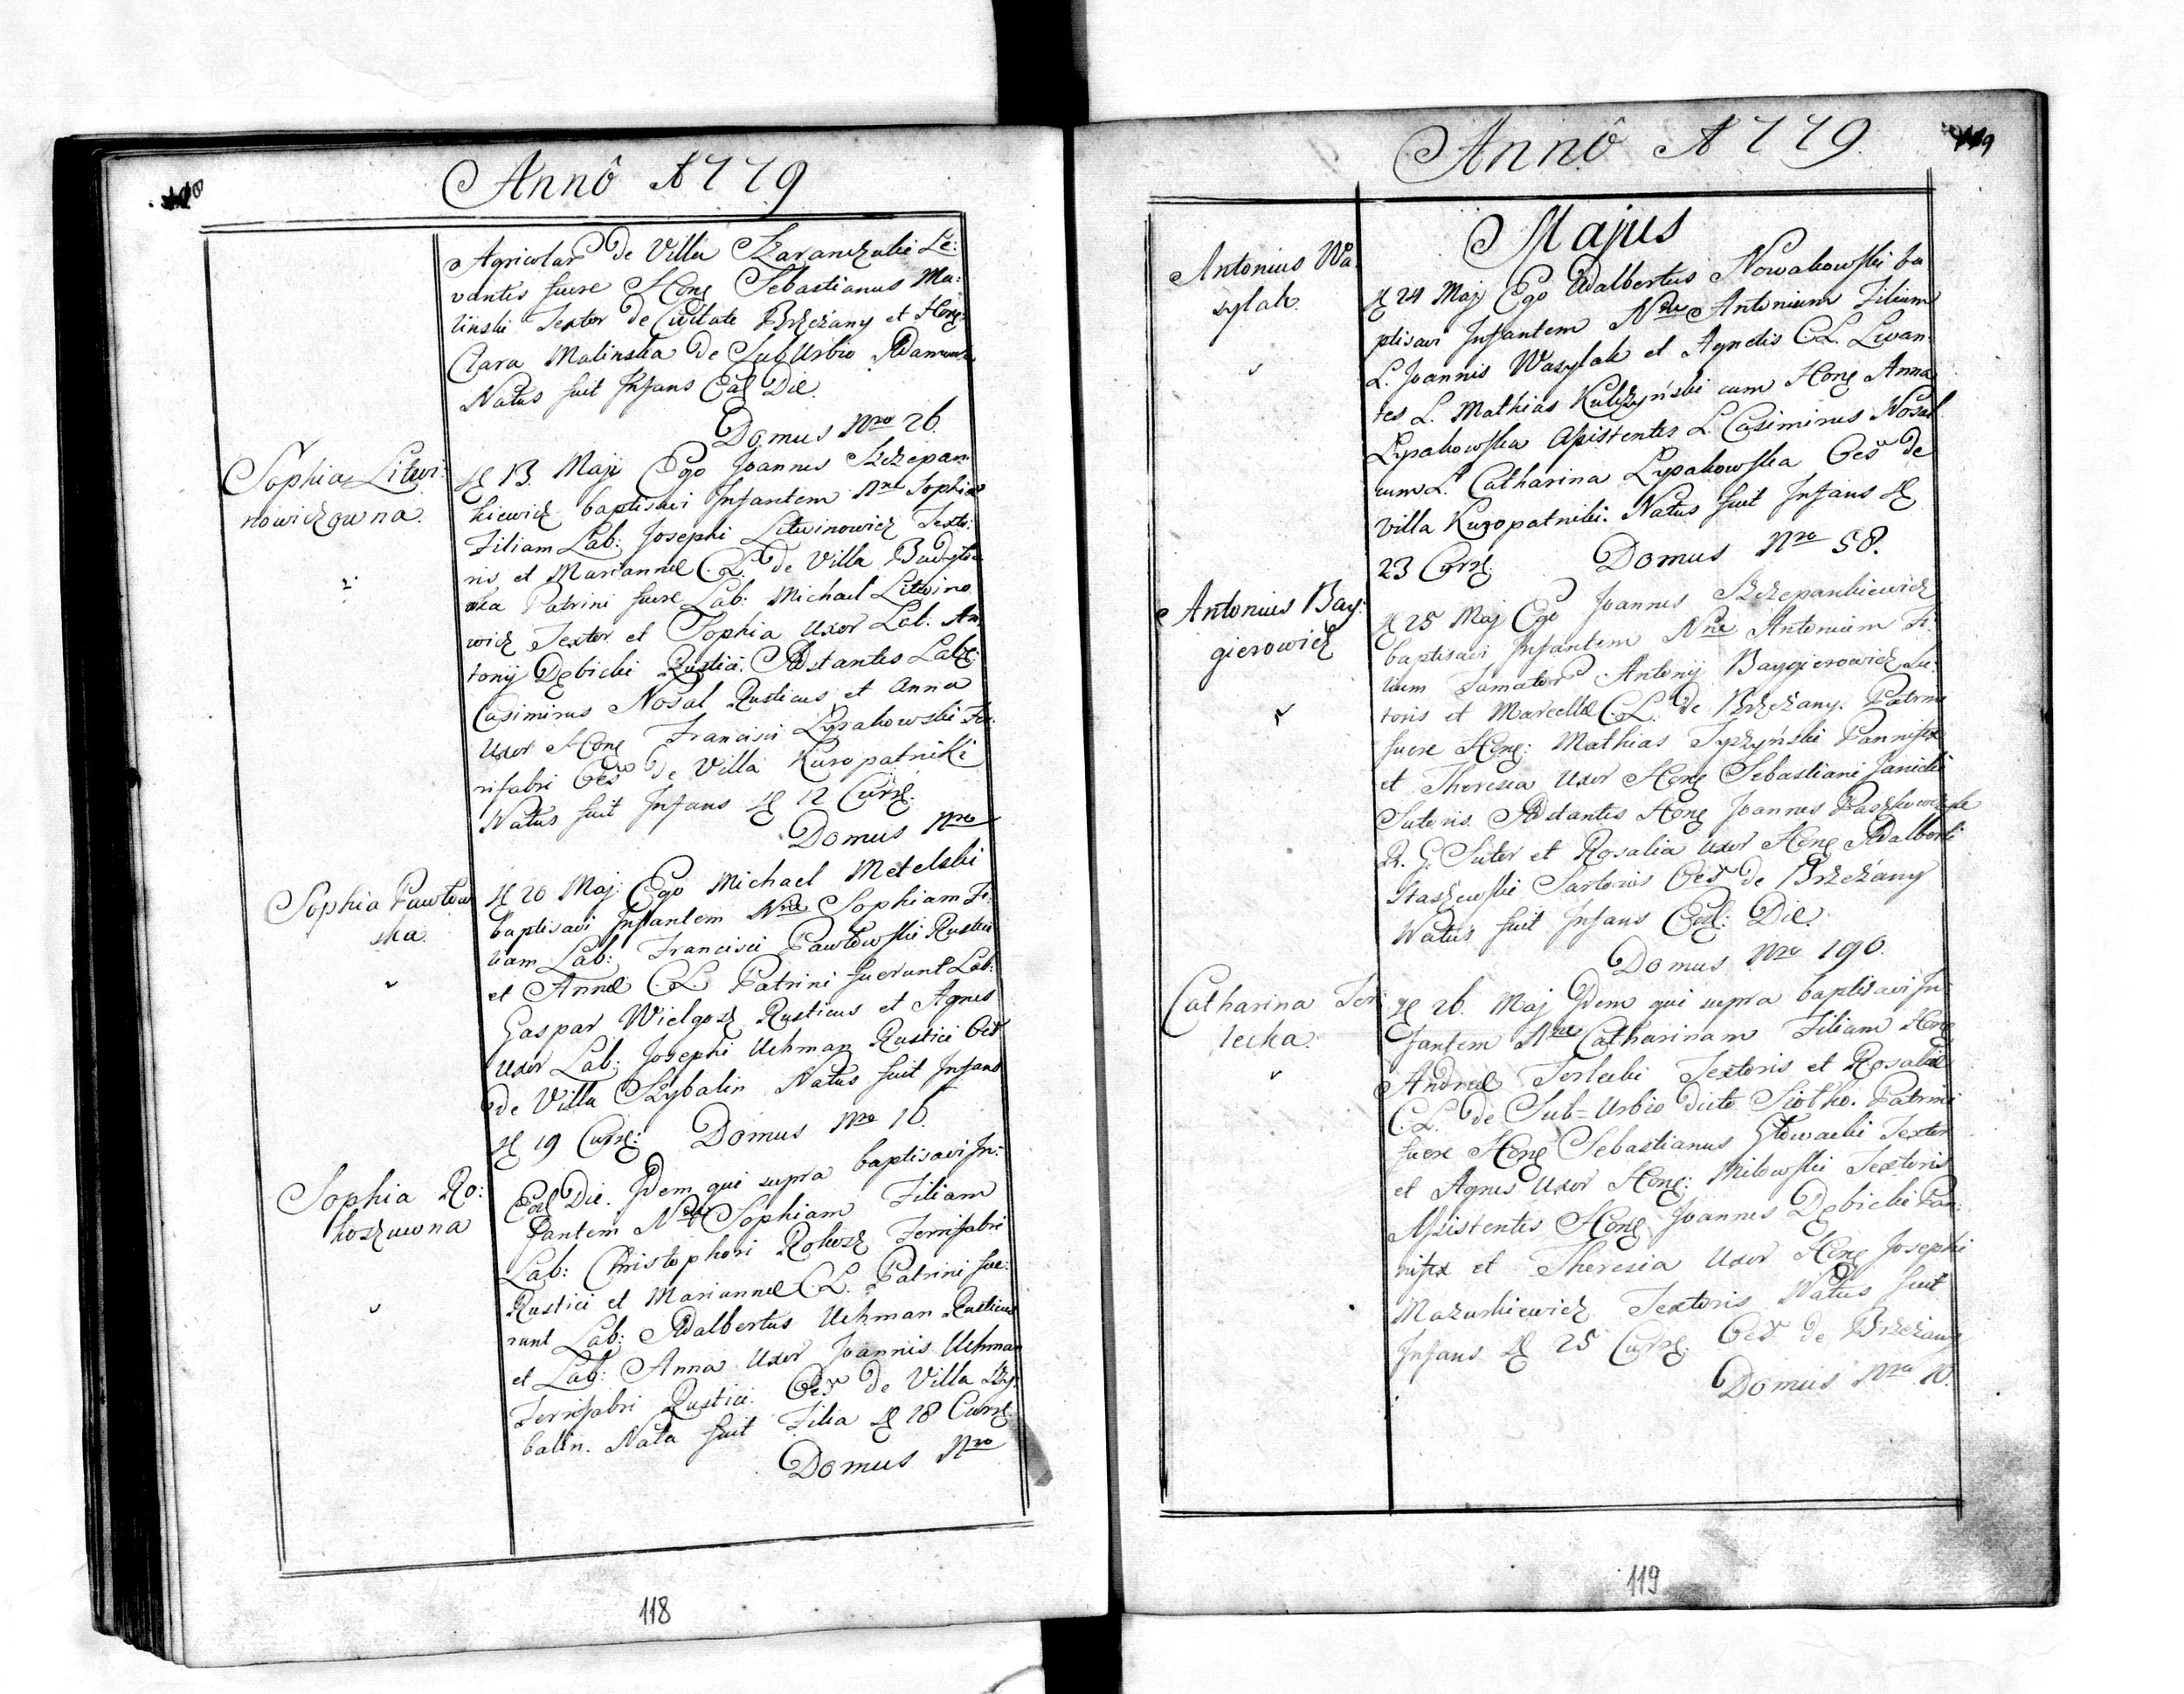 118
Annô 1779
Agricolar de Villa Szaranczuki Le:
vantes fuere Hong Sebastianus Ma:
linski Textor de Civitate Brzeżany et Hong
Clara Malinska de SubUrbio
Natus fuit Infans Ead Die.
Domus Nro 26.
Sophia Litwi:
nowiczowna.
13. Maji Ego Joannes Szczepan:
kiewicz baptisavi Infantem Nne Sophia
Filiam Lab: Josephi Litwinowicz Texto:
ris et Mariannæ C. L. de Villa
Patrini fuere Lab: Michael Litwino
wicz Textor et Sophia Uxor Lab: An
tonij Dębicki Rustici. Adstantes Lab:
Casimirus Nosal Rusticus et Anna
Uxor Hong Francisci Lypakowski Fer:
rifabri Oēs de Villa Kuropatniki
Natus fuit Infans 12 Curr:
Domus Nro
Sophia Pawłow
ska.
20 Maj: Ego Michael Metelski
baptisavi Infantem Nne Sophiam Fi:
liam Lab: Francisci Pawłowski Rustici
et Annæ C. L. Patrini fuerunt Lab:
Gaspar Wielgosz Rusticus et Agnes
Uxor Lab: Josephi Uchman Rustici Oēs
de Villa Szybalin Natus fuit Infans
19 Curr: Domus Nro 16.
Sophia Ro:
koszuwna
Ead Die. Idem qui supra baptisavi In:
fantem Nne Sophiam Filiam
Lab: Christophori Rokosz Ferrifabri
Rustici et Mariannæ C. L. Patrini fue:
runt Lab: Adalbertus Uchman Rusticus
et Lab: Anna Uxor Joannis Uchman
Ferrifabri Rustici. Oēs de Villa Szy:
balin. Nata fuit Filia 18 Curr:
Domus Nro
118
119
Annô 1779.
Majus
Antonius Wa:
sylak.
24 Maj Ego Adalbertus Nowakowski ba
ptisavi Infantem Nne Antonium Filium
L. Joannis Wasylak et Agnetis C. L. Levan:
tes L. Mathias Kulczyński cum Hong Anna
Lypakowska Assistentes L. Casimirus Nosal
cum L. Catharina Lypakowska Oēs de
villa Kuropatniki. Natus fuit Infans
23 Curr: Domus Nro 58.
Antonius Bay:
gierowicz
25 Maj Ego Joannes Szczepankiewicz
baptisavi Infantem Nne Antonium Fi:
lium Famator Antonij Baygierowicz Su:
toris et Marcellæ C. L. de Brzeżany. Patrini
fuere Hong: Mathias Pannifex
et Theresia Uxor Hong Sebastiani Janicki
Sutoris. Adstantes Hong Joannes
R. G. Sutor et Rosalia Uxor Hong Adalberti
Staszewski Sartoris Oēs de Brzeżany
Natus fuit Infans Ead: Die.
Domus Nro 190.
Catharina Ter:
lecka.
26. Maj Idem qui supra baptisavi In:
fantem Nne Catharinam Filiam Hong
Andreæ Terlecki Textoris et Rosaliæ
C. L. de Sub=Urbio dicto Siołko. Patrini
fuere Hong Sebastianus Głowacki Textor
et Agnes Uxor Hong: Miłowski Textoris
Assistentes Hong Joannes Dębicki Pan:
nifex et Theresia Uxor Hong Josephi
Mazurkiewicz Textoris Natus fuit
Infans 25 Curr: Oēs de Brzeżany
Domus Nro 10.
119